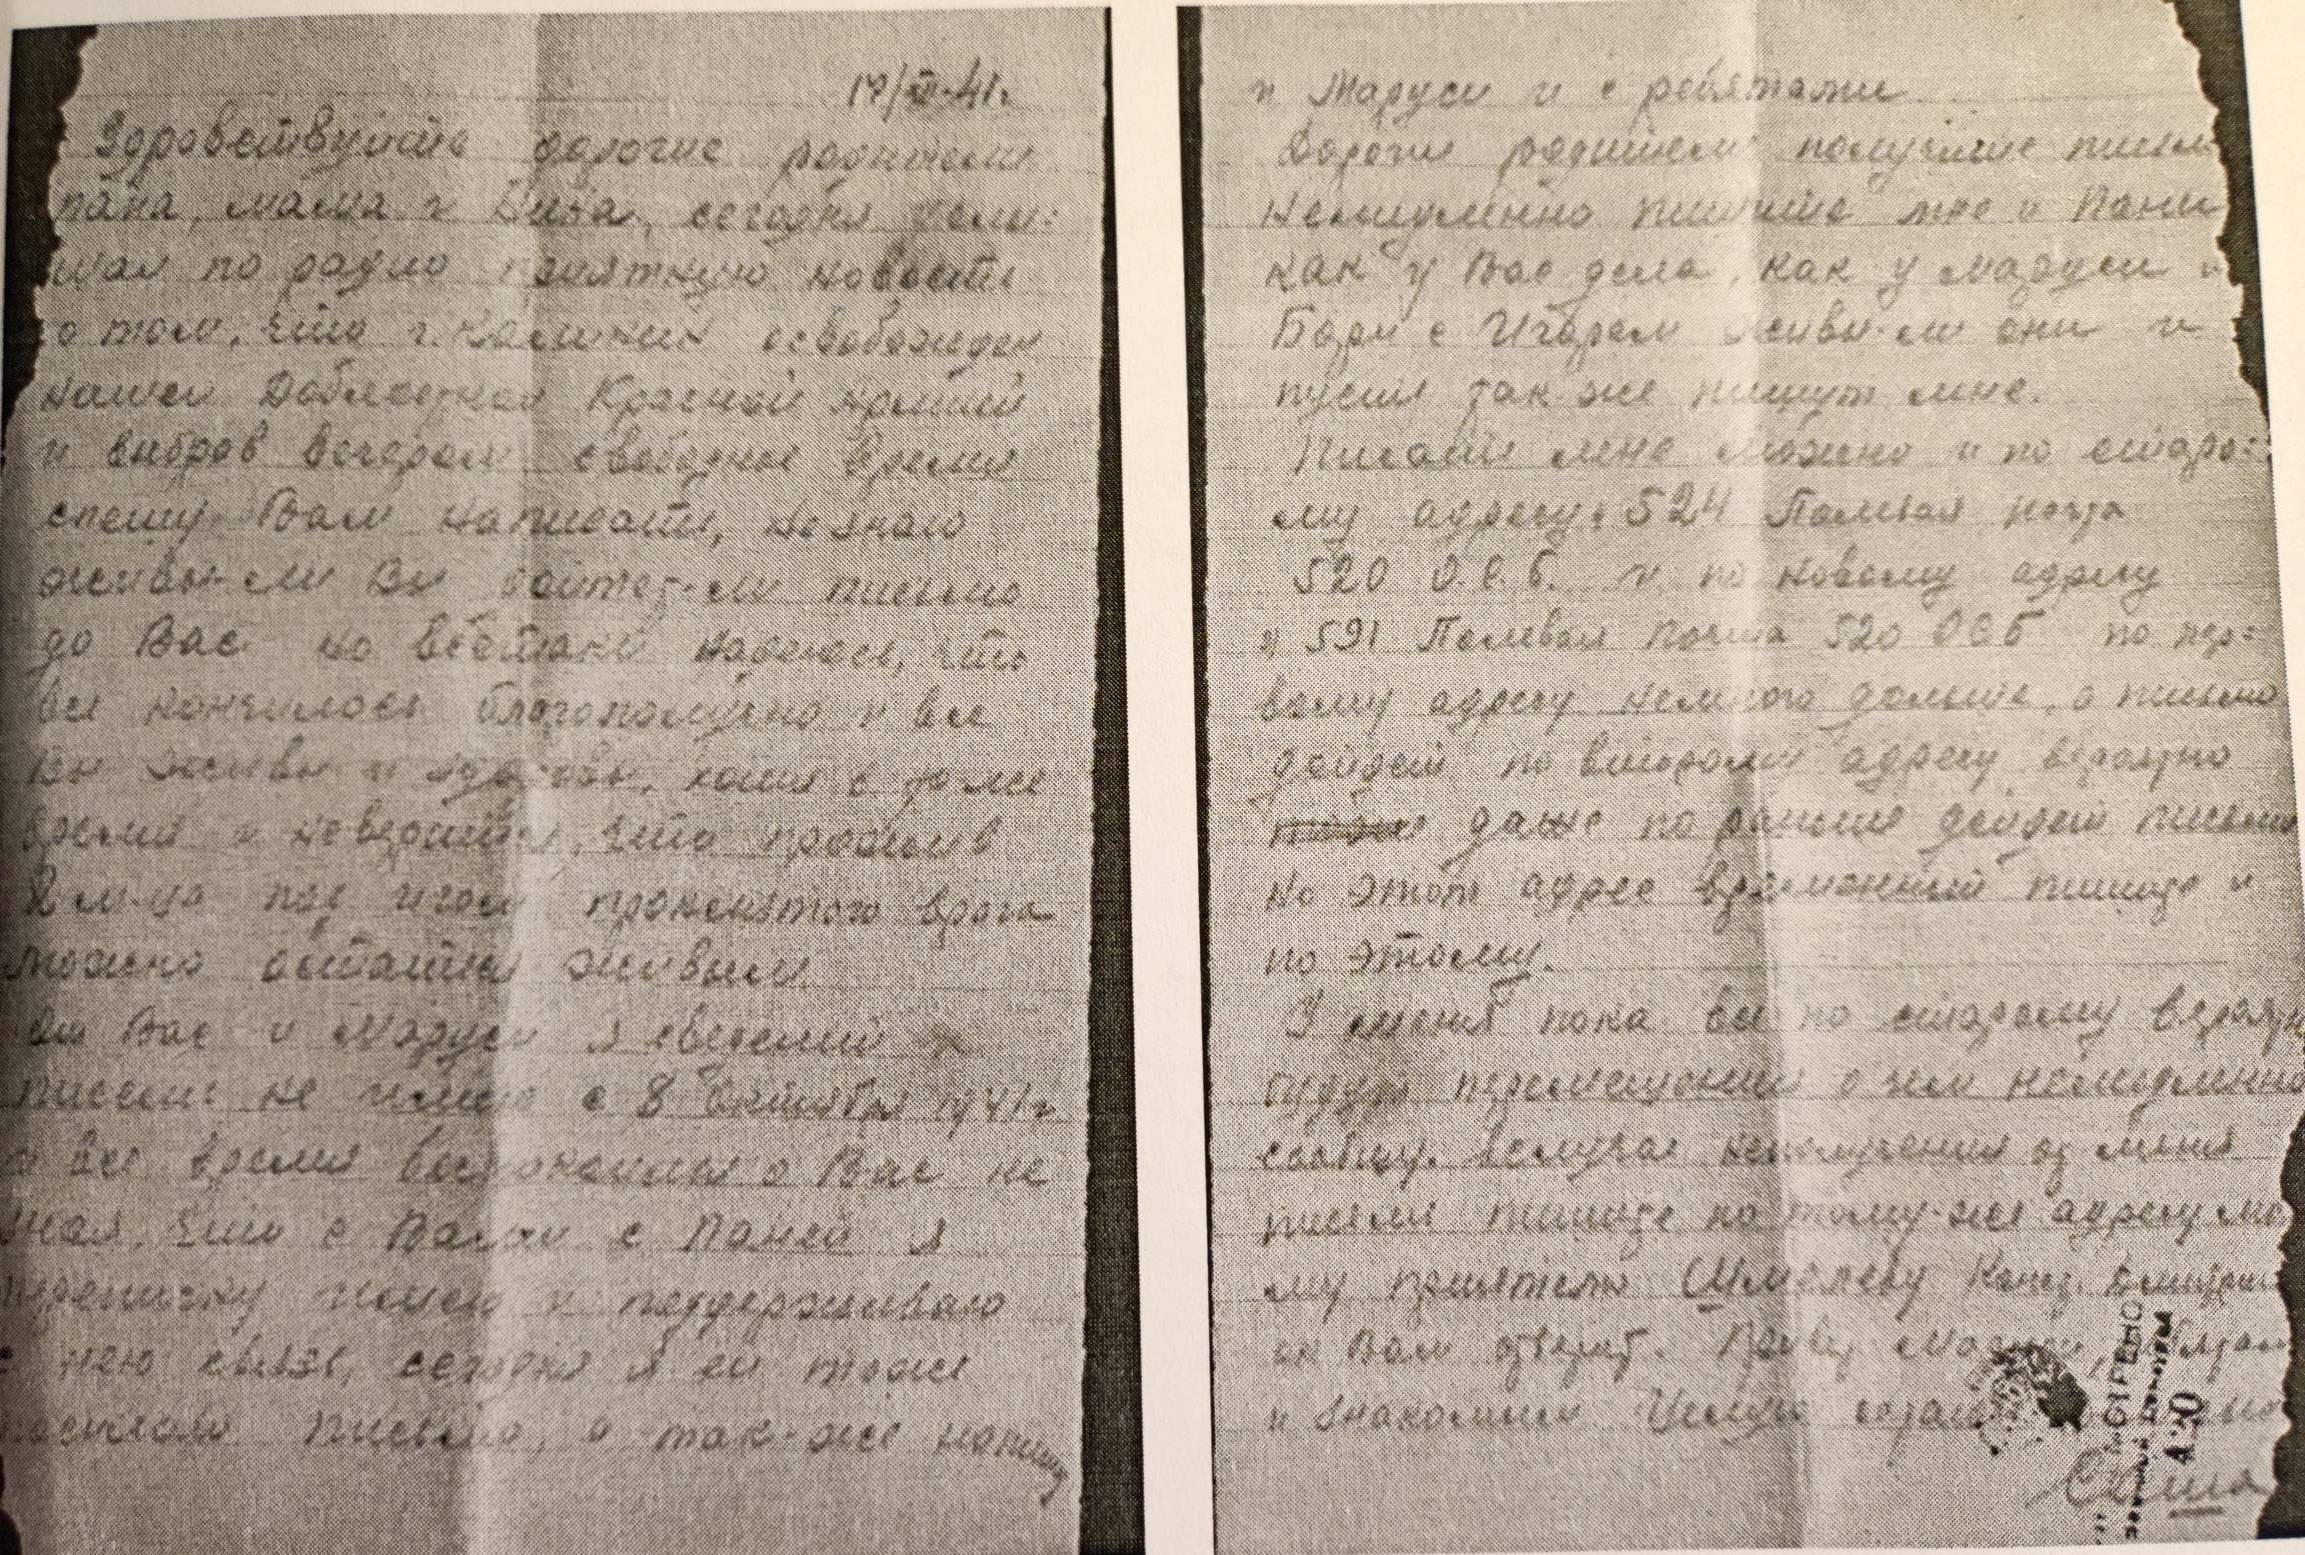 17/XII-41г.
Здравствуйте дорогие родители
папа, мама и сегодня услы-
шал по радио приятную новость
о том, что г. Калинин освобожден
нашей Доблестной Красной Армией
и выбрав вечером свободное время
спешу Вам написать, не знаю
живы-ли Вы дойдет-ли письмо
до Вас но всетаки надеюсь, что
все кончилось благополучно и все
Вы живы и здоровы, хотя в то же
время и неверится, что прожив
2 м-ца под игом проклятого врага
можно остаться живым.
От Вас и Маруси я сведений
писем не имею с 8 октября 1941 г.
и все время беспокоился о Вас не
зная, что с Вами с Паней я
переписку имею и поддерживаю
с нею связь, сегодня я ей тоже
посылаю письмо, а так-же напишу
и Маруси и с ребятами
Дороги родители получите письмо
немедленно пишите мне и Пани
как у Вас дела, как у Маруси и
Бори с Игорем живы-ли они и
пусть так же пишут мне.
Писать мне можно и по старо-
му адресу: 524 Полевая почта
520 О.С.б. и по новому адресу
591 Полевая почта 520 ОСб по пер-
вому адресу немного дольше, а письмо
дойдет по второму адресу вероятно
даже по раньше дойдет письмо
но этот адрес временный пишите и
по этому.
У меня пока все по старому вероятно
будут перемещения о чем немедленно
сообщу. Вслучае неполучения от меня
писем пишите по тому-же адресу мо-
му приятелю Шмелеву
он Вам ответит. Привет
и знакомым Целую
Саша
А20